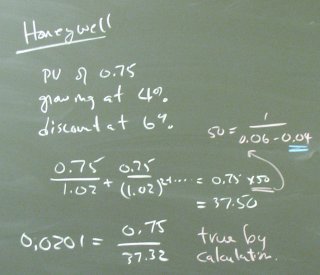 Honeywell
PV of 0.75
growing at 4%
discount at 6%
50 = 1 / 0.06 - 0.04
0.75 / 1.02 + 0.75 / (1.02)² + .... = 0.75 x 50
= 37.50
0.0201 = 0.75 / 37.32 true by calculation.